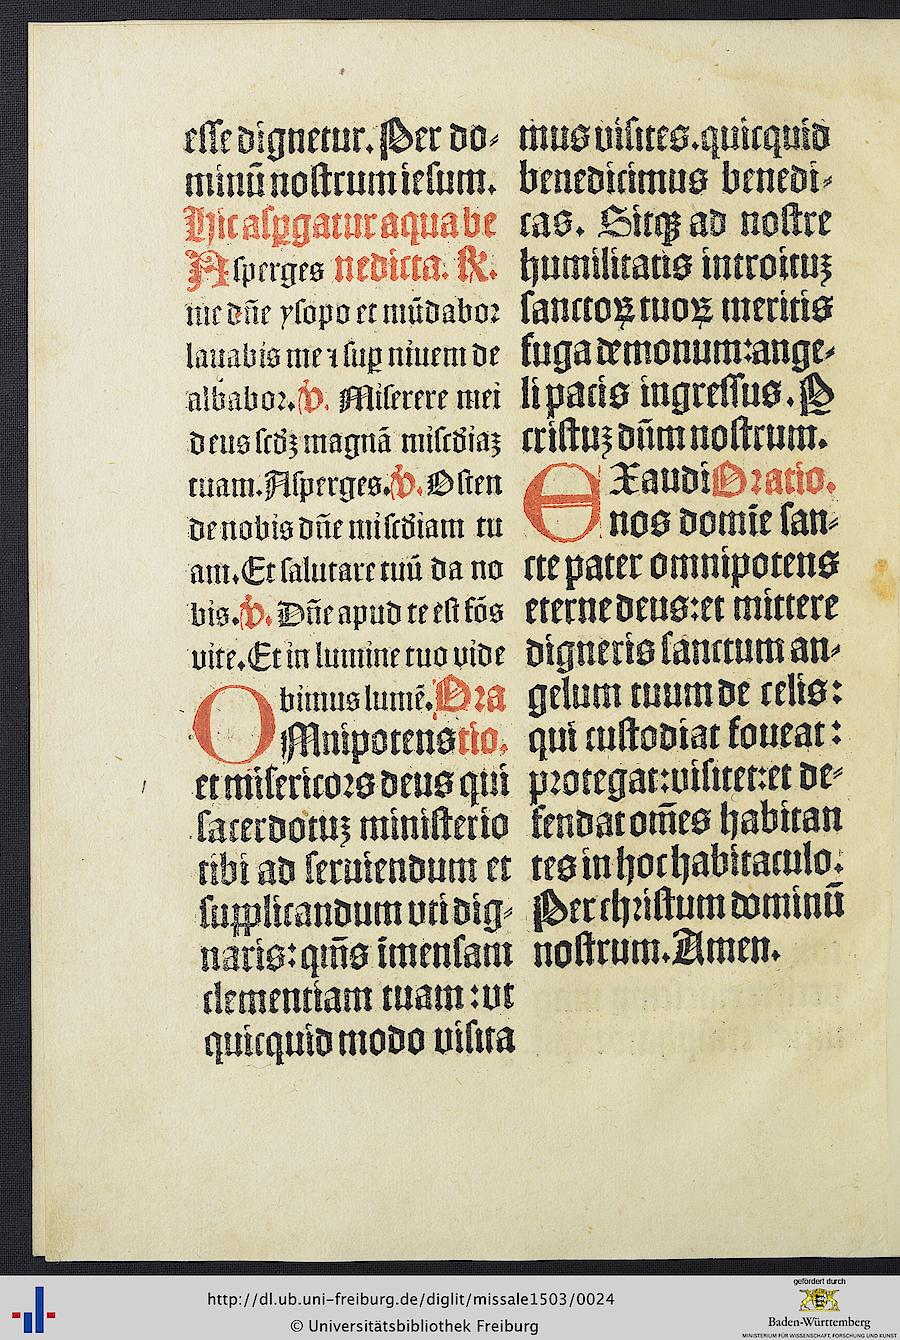 esse dignetur. Per do⸗
minū nostrum iesum.
Hic aspꝑgatur aqua be
Asperges nedicta. ℟.
me dn̄e ysopo et mūdabor
lauabis me ⁊ suꝑ niuem de
albabor. ℣. Miserere mei
deus scd̄ꝫ magnā misc̄diaꝫ
tuam. Asperges. ℣. Osten
de nobis dn̄e misc̄diam tu
am. Et salutare tuū da no
bis. ℣. Dn̄e apud te est fōs
vite. Et in lumine tuo vide
bimus lumē. Ora
OMnipotens tio.
et misericors deus qui
sacerdotuꝫ ministerio
tibi ad seruiendum et
supplicandum vti dig⸗
naris: qm̄s īmensam
clementiam tuam: vt
quicquid modo visita
mus visites. quicquid
benedicimus benedi⸗
cas. Sitqꝫ ad nostre
humilitatis introituꝫ
sanctoꝝ tuoꝝ meritis
fuga demonum: ange⸗
li pacis ingressus. Ꝑ
cristuꝫ dn̄m nostrum.
EXaudi Oratio.
nos domīe san⸗
cte pater omnipotens
eterne deus: et mittere
digneris sanctum an⸗
gelum tuum de celis:
qui custodiat foueat:
protegat: visitet: et de⸗
fendat om̄es habitan
tes in hoc habitaculo.
Per christum dominū
nostrum. Amen.
http://dl.ub.uni-freiburg.de/diglit/missale1503/0024
© Universitätsbibliothek Freiburg
gefördert durch
Baden-Württemberg
MINISTERIUM FÜR WISSENSCHAFT, FORSCHUNG UND KUNST